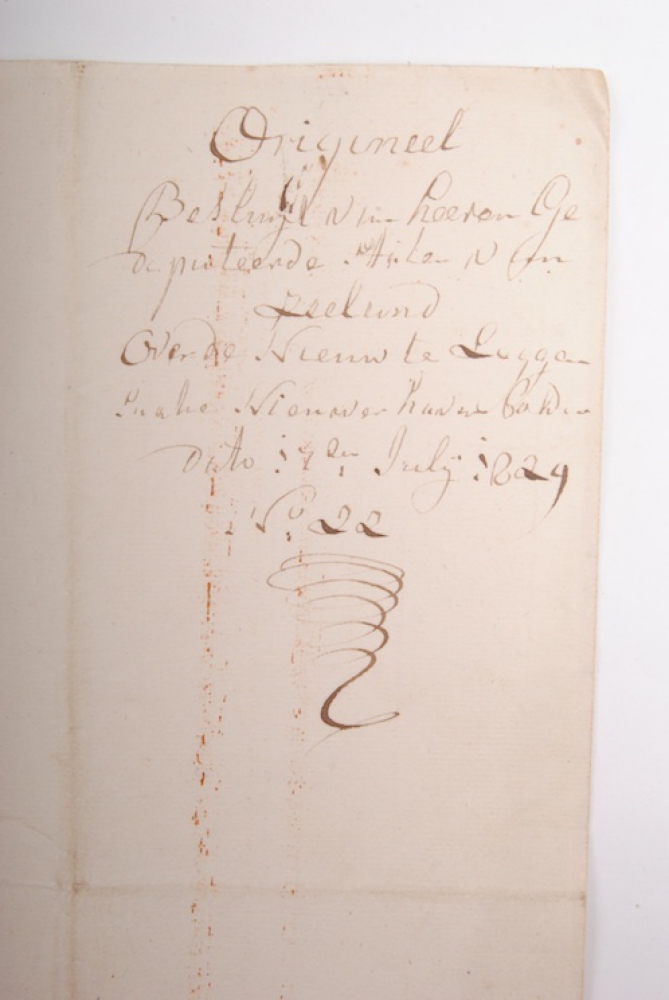 Origineel
Besluijt van heeren Ge
deputeerde Staten van
Zeeland
Over de Nieuw te Leggen
haven
dato 7en Julij 1829
No 22